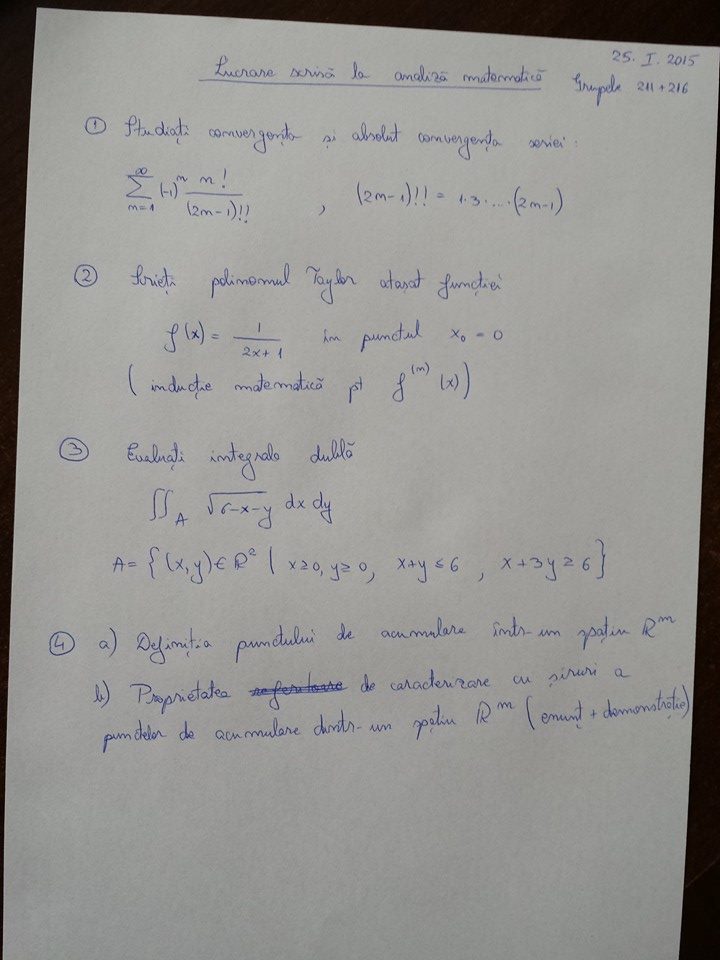 25. I. 2015
Lucrare scrisă la analiză matematică Grupele 211+216
① Studiați convergența și absolut convergența seriei:
∑_{n=1}^{∞} (-1)^n n!/(2n-1)!! , (2n-1)!! = 1·3·....(2n-1)
② Scrieți polinomul Taylor atașat funcției
f(x) = 1/(2x+1) în punctul x₀ = 0
(inducție matematică pt f^(n)(x))
③ Evaluați integrala dublă
∬_A √(6-x-y) dx dy
A = {(x,y) ∈ ℝ² | x≥0, y≥0, x+y≤6, x+3y≥6}
④ a) Definiția punctului de acumulare într-un spațiu ℝ^m
b) Proprietatea de caracterizare cu șiruri a
punctelor de acumulare dintr-un spațiu ℝ^m (enunț + demonstrație)